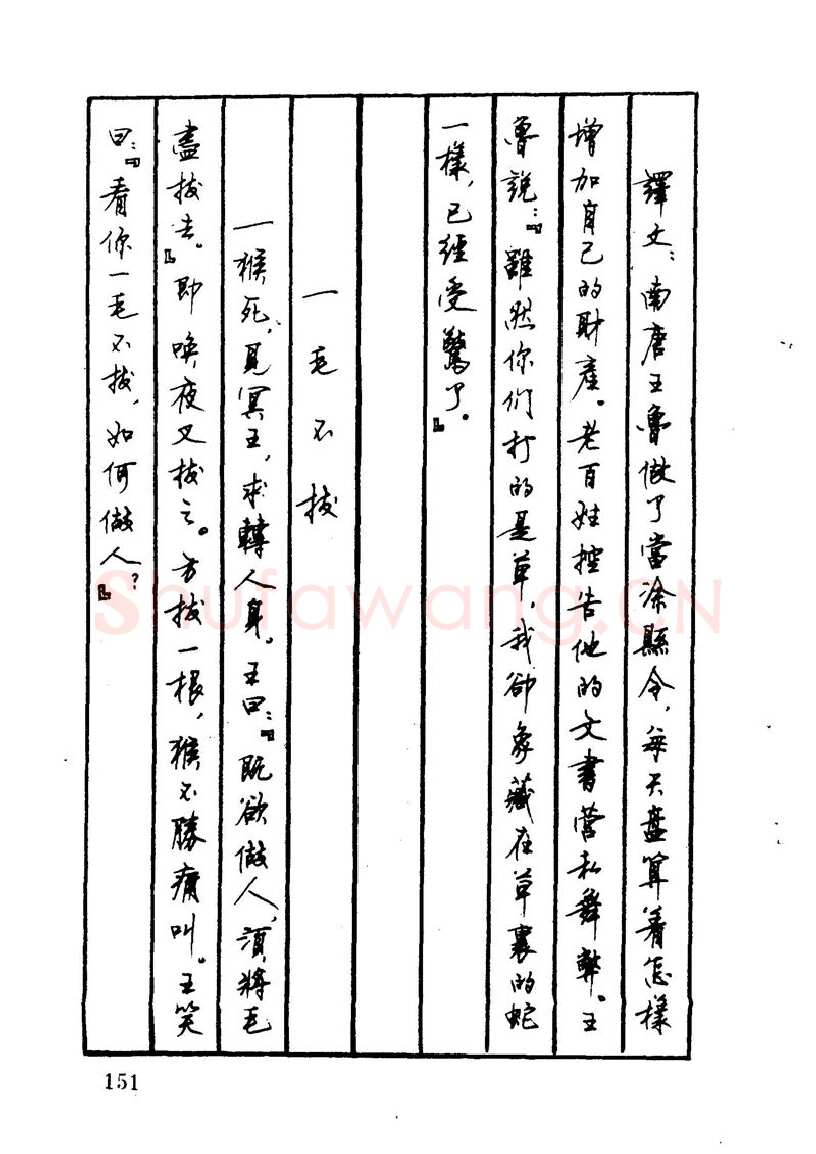 譯文：南唐王魯做了當涂縣令，每天盘算着怎樣
增加自己的財產。老百姓控告他的文書营私舞弊。王
魯說：『雖然你們打的是草，我卻象藏在草裏的蛇
一樣，已經受驚了。』
一毛不拔
一猴死，見冥王，求轉人身。王曰：『既欲做人，須將毛
盡拔去。』即喚夜叉拔之。方拔一根，猴不勝痛叫。王笑
曰：『看你一毛不拔，如何做人？』
151
Shufawang.CN